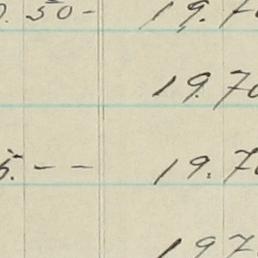 50- 19.7
19.7
5. -- 19.7
197